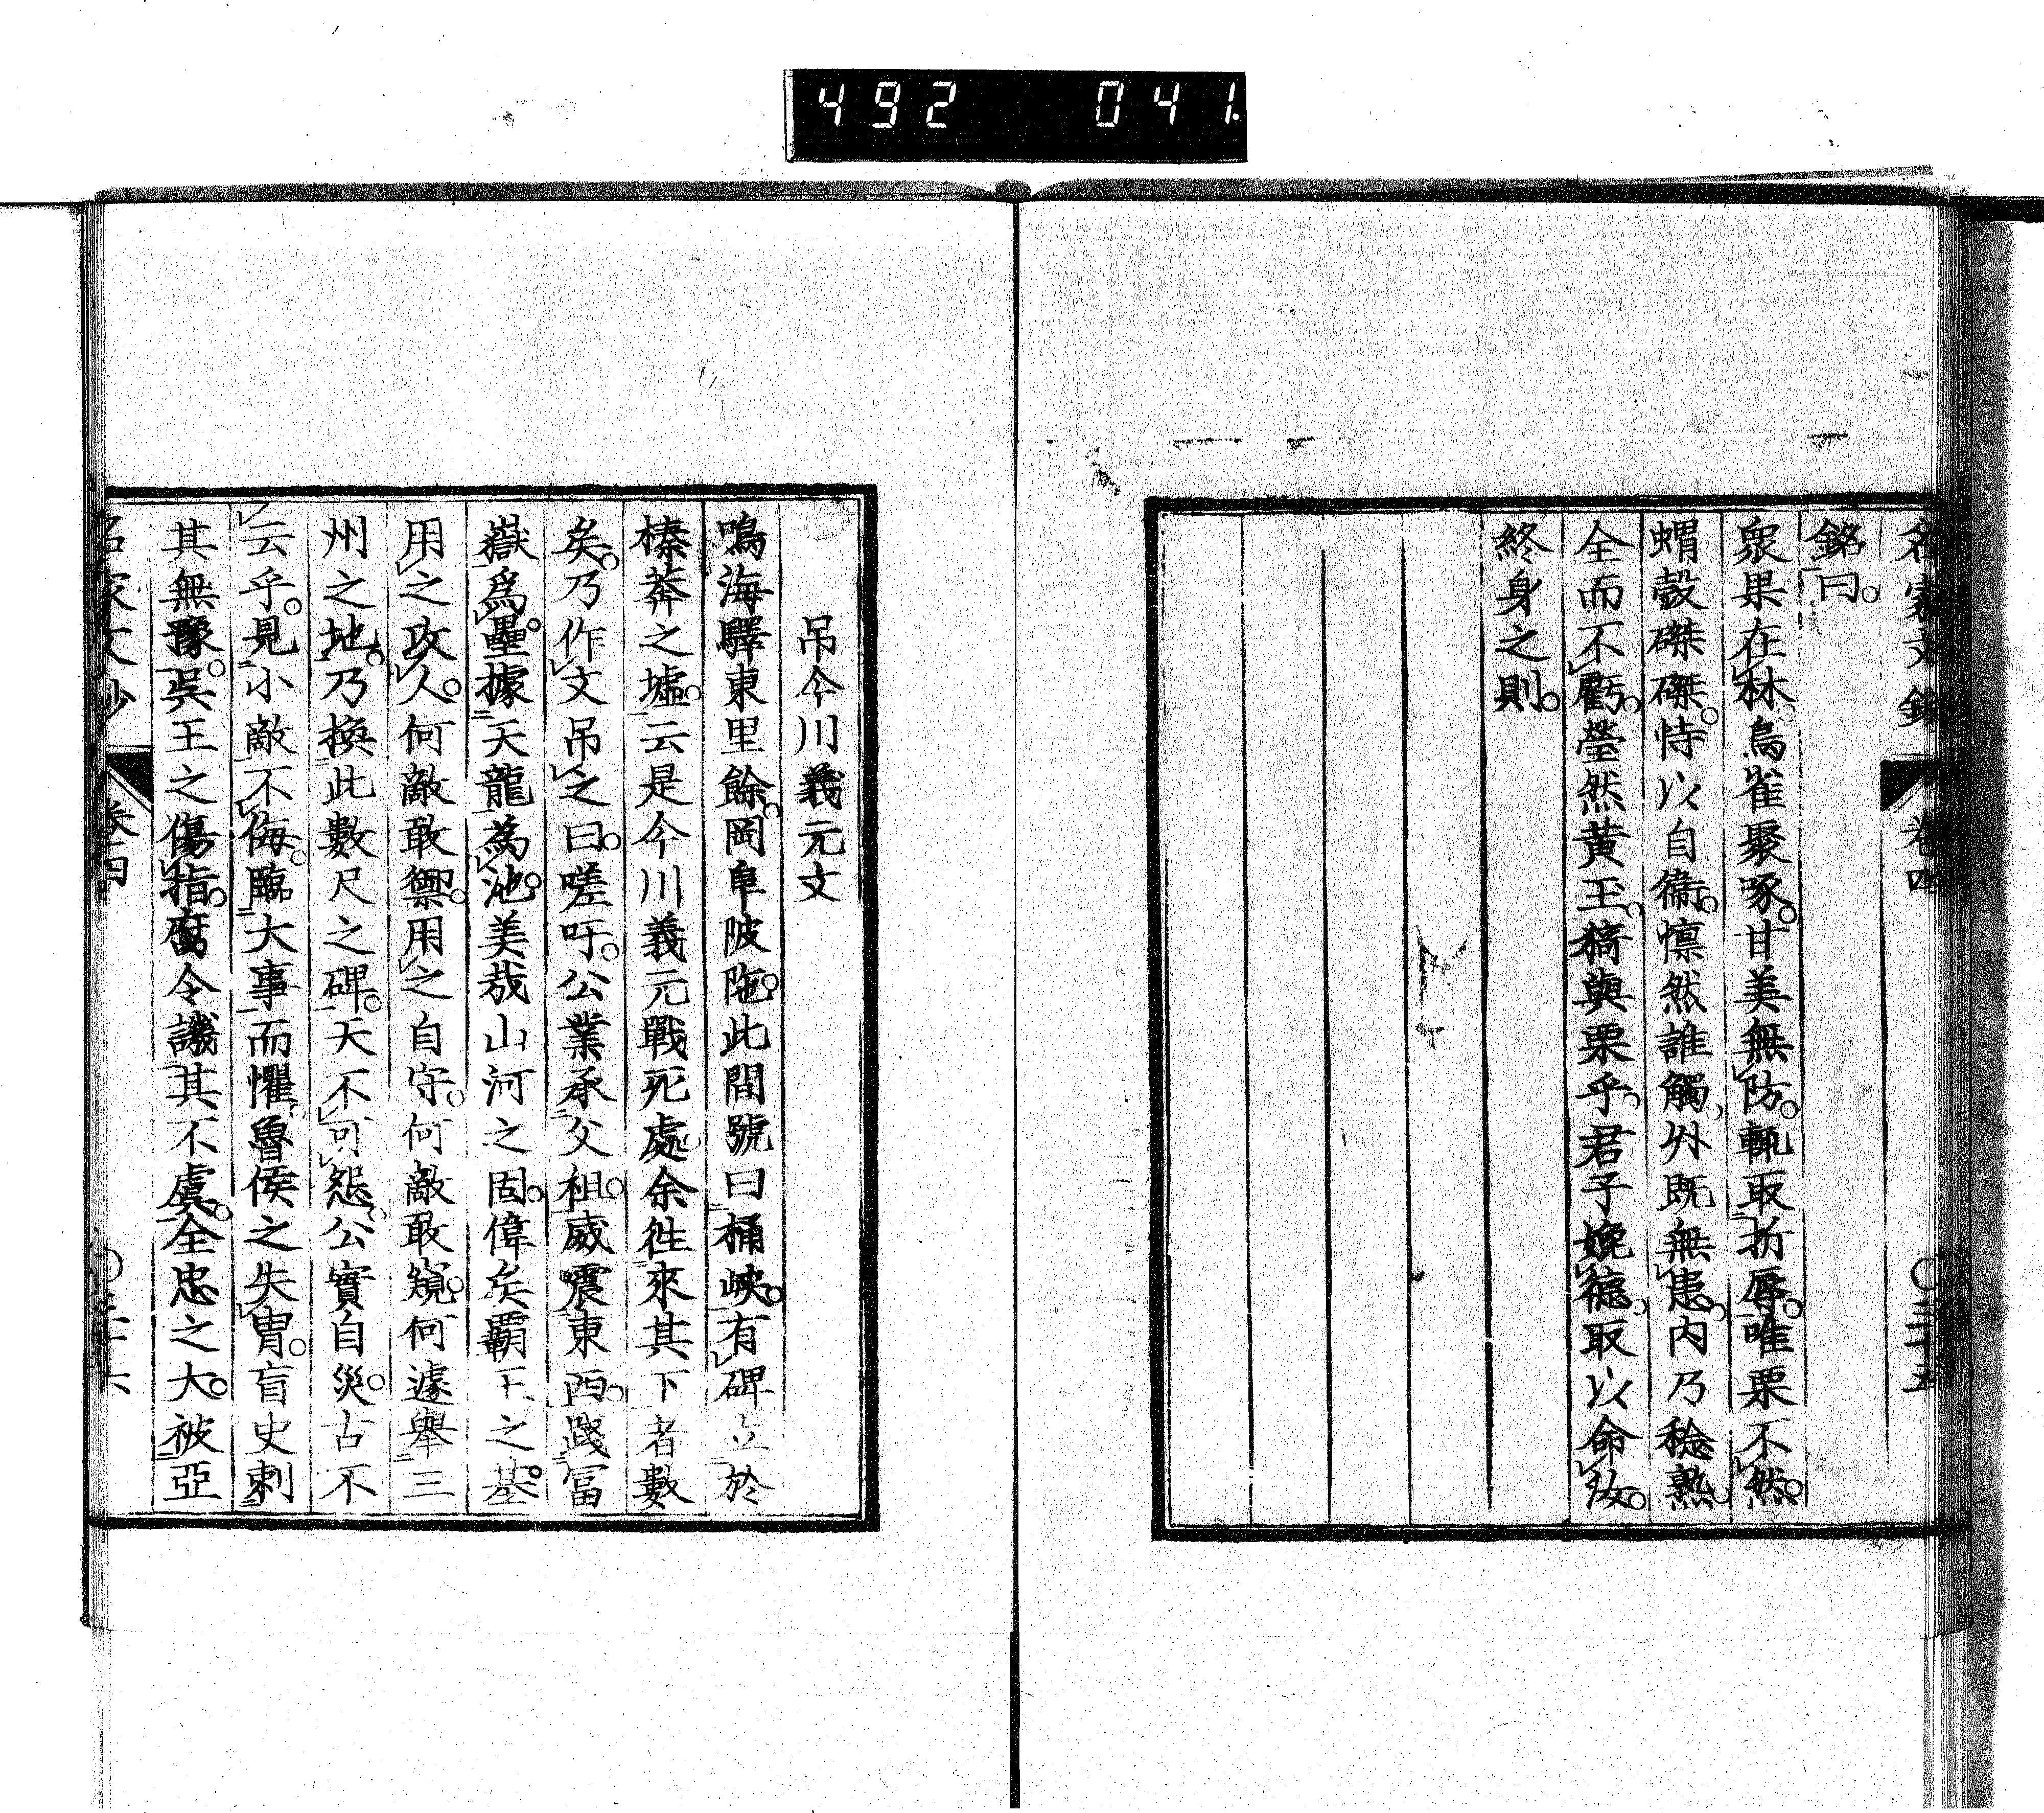 492 041.
名家文鈔 卷四 〇二十五
銘曰。
衆果在林烏雀聚啄。甘美無防。輒取折辱。唯栗不然。
蝟殼磔磔。恃以自衞。懍然誰觸、外既無患、内乃稔熟、
全而不虧。瑩然黄玉、猗與栗乎、君子媲德、取以命汝。
終身之則。
吊今川義元文
鳴海驛東里餘。岡阜陂陁。此間號曰桶峽。有碑立於
榛莽之墟。云是今川義元戰死處。余徃來其下者數
矣。乃作文吊之曰。嗟吁。公業承父祖。威震東西。踐冨
嶽爲壘。據天龍為池。美哉山河之固。偉矣霸王之基。
用之攻人。何敵敢禦。用之自守。何敵敢窺。何遽舉三
州之地。乃換此數尺之碑。天不可怨。公實自災。古不
云乎。見小敵不侮。臨大事而懼。魯侯之失冑。盲史刺
其無豫。吳王之傷指。腐令譏其不虞。全忠之大。被亞
名家文鈔 卷四 〇二十六